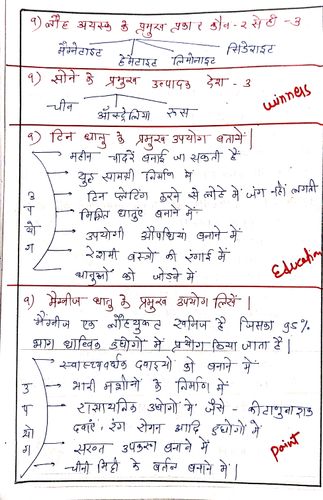 १) लौह अयस्क के प्रमुख प्रकार कौन-२ से है - 3
मैग्नेटाइट हेमेटाइट लिमोनाइट सिडेराइट
१) सोने के प्रमुख उत्पादक देश - 3
चीन ऑस्ट्रेलिया रूस
winners
१) टिन धातु के प्रमुख उपयोग बतायें |
महीन चादरें बनाई जा सकती हैं
युद्ध सामग्री निर्माण में
टिन प्लेटिंग करने से लोहे में जंग नहीं लगती
मिश्रित धातुएं बनाने में
उपयोगी औषधियां बनाने में
रेशमी वस्त्रों की रंगाई में
धातुओं को जोड़ने में
उपयोग
Education
१) मैंग्नीज धातु के प्रमुख उपयोग लिखें |
मैंग्नीज एक लौहयुक्त खनिज है जिसका 95%
भाग धात्विक उद्योगों में प्रयोग किया जाता है |
स्वास्थ्यवर्धक दवाइयों को बनाने में
भारी मशीनों के निर्माण में
रासायनिक उद्योगों में जैसे - कीटाणुनाशक
दवाएं, रंग रोगन आदि उद्योगों में
सख्त उपकरण बनाने में
चीनी मिट्टी के बर्तन बनाने में |
उपयोग
point